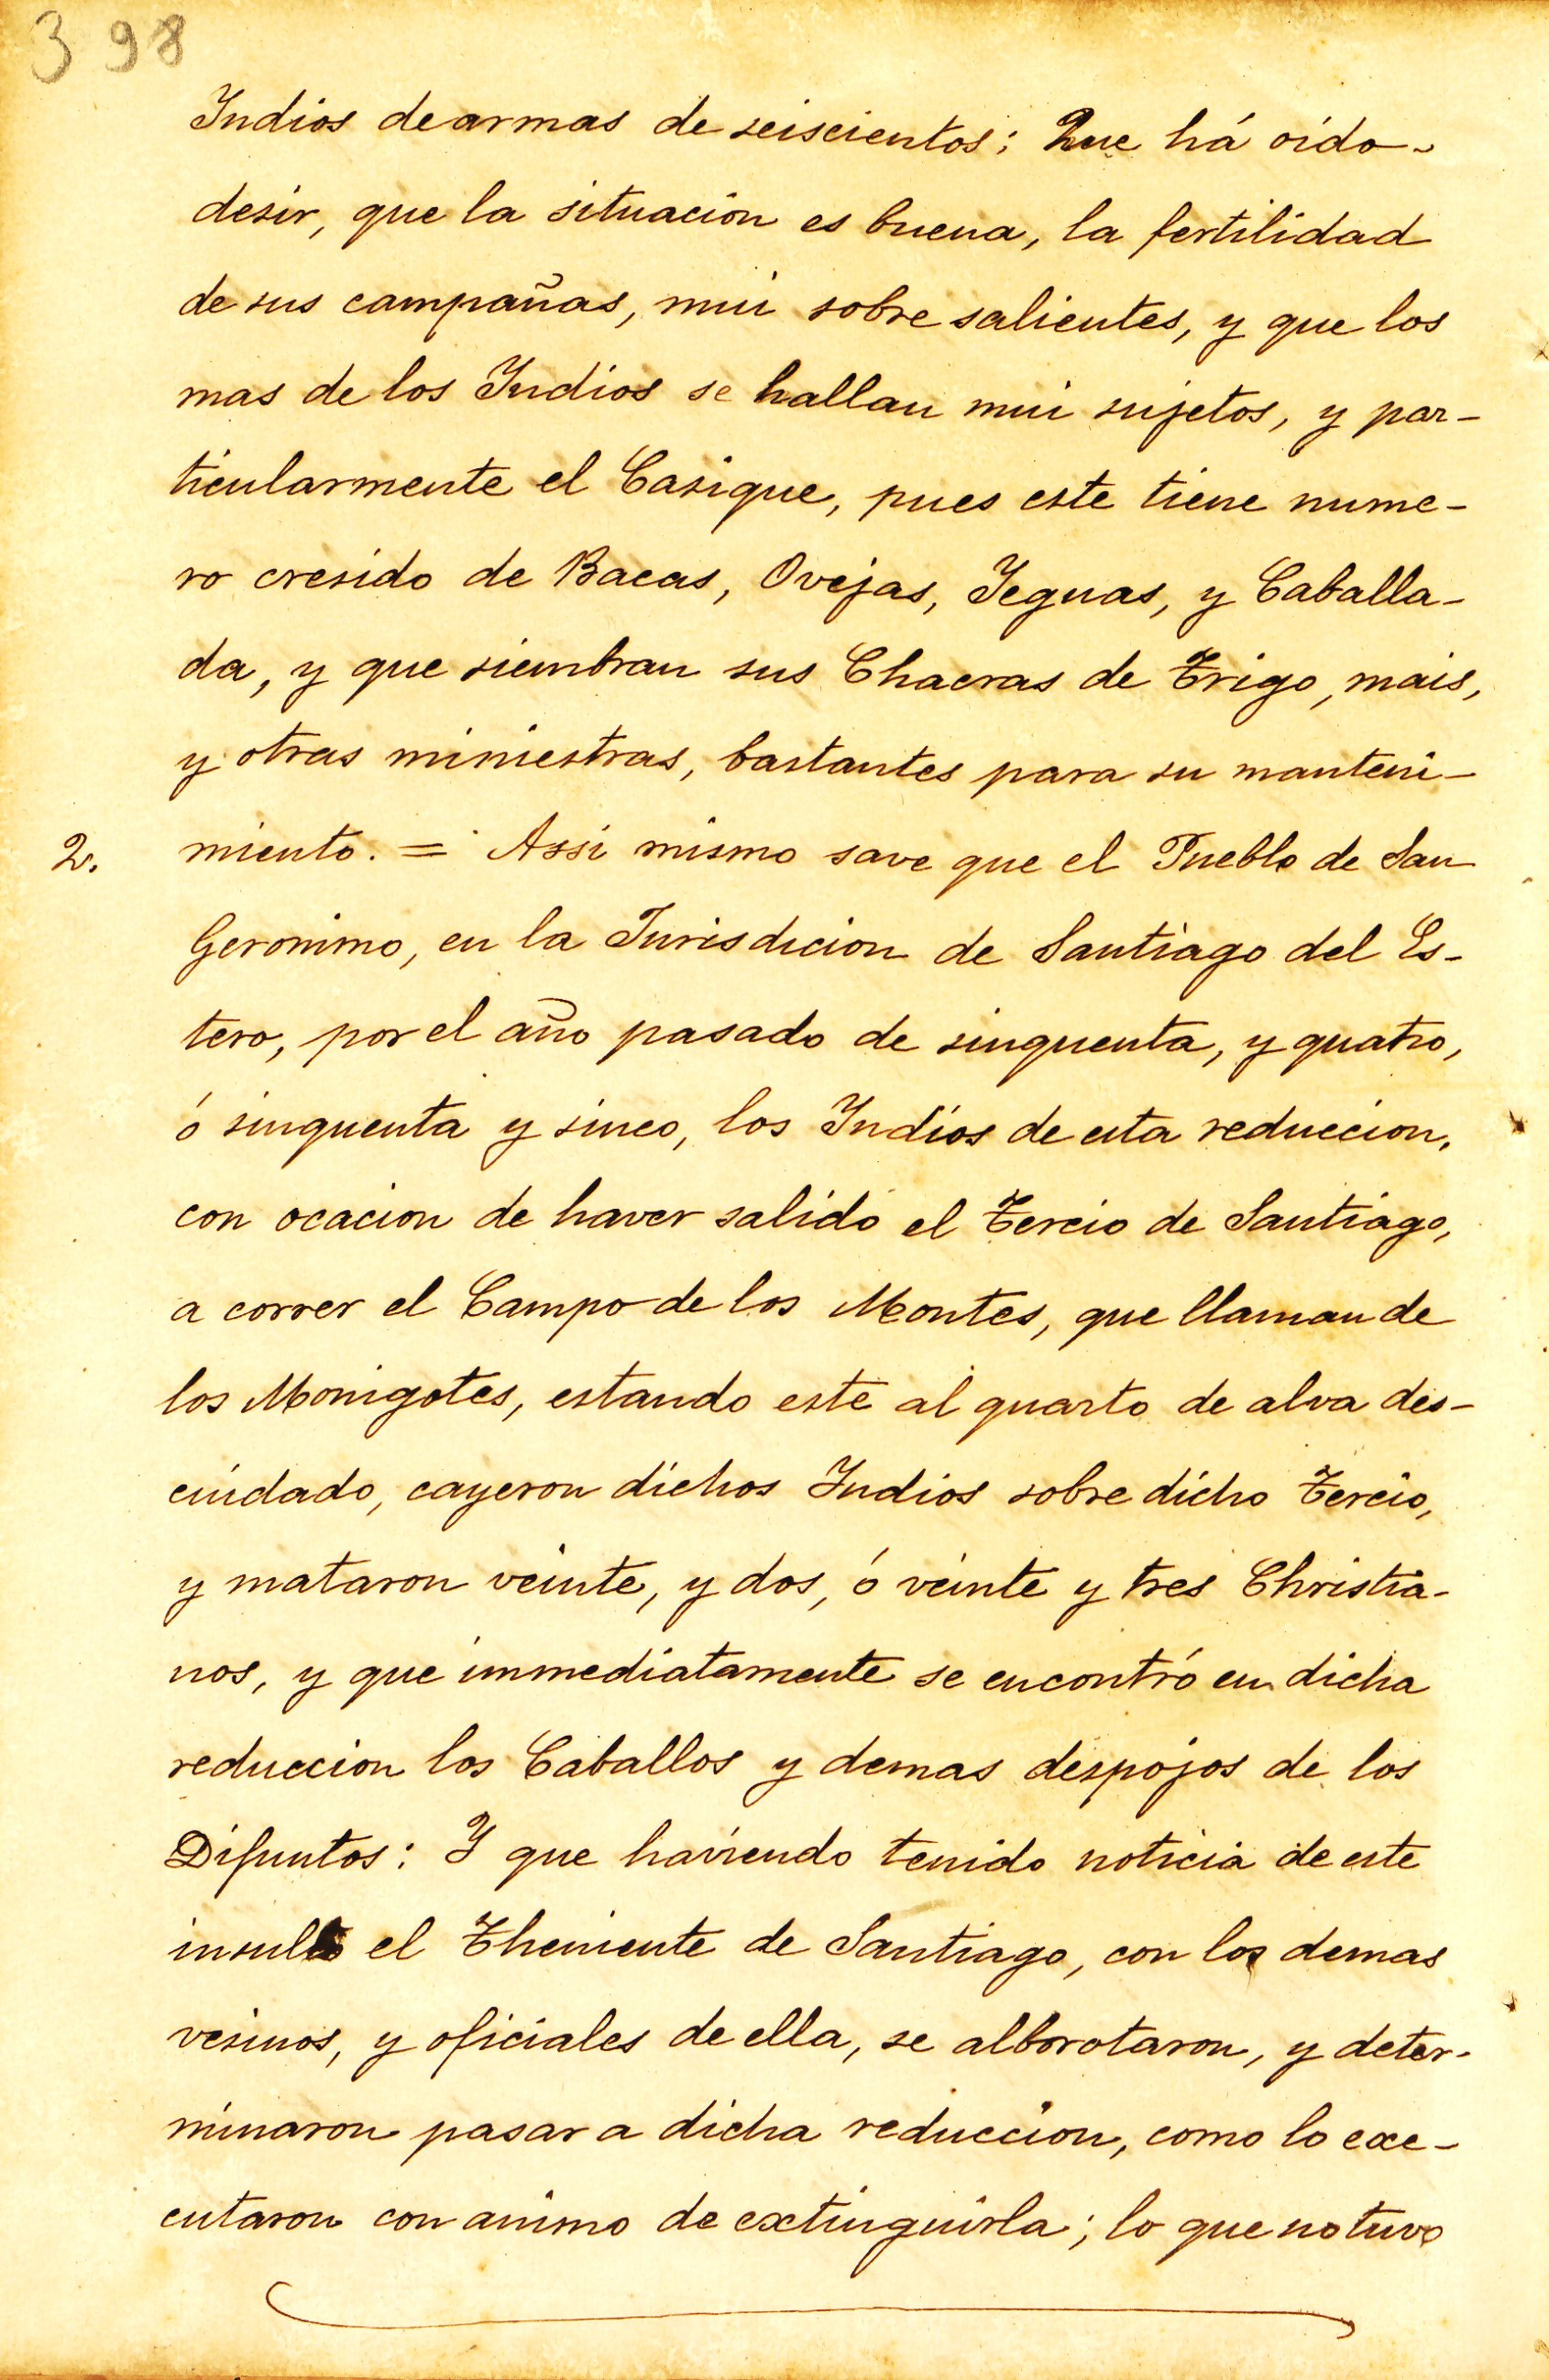 398
Indios dearmas de seiscientos: Que há oido-
desir, que la situacion es buena, la fertilidad
de sus campañas, mui sobre salientes, y que los
mas de los Indios se hallan mui sujetos, y par-
ticularmente el Casique, pues este tiene nume-
ro cresido de Bacas, Ovejas, Yeguas, y Caballa-
da, y que siembran sus Chacras de Trigo, mais,
y otras miniestras, bastantes para su manteni-
2. miento. = Assi mismo save que el Pueblo de San
Geronimo, en la Jurisdicion de Santiago del Es-
tero, por el año pasado de sinquenta, y quatro,
ó sinquenta y sinco, los Indios de esta reduccion,
con ocacion de haver salido el Tercio de Santiago,
a correr el Campo de los Montes, que llaman de
los Monigotes, estando este al quarto de alva des-
cuidado, cayeron dichos Indios sobre dicho Tercio,
y mataron veinte, y dos, ó veinte y tres Christia-
nos, y que immediatamente se encontró en dicha
reduccion los Caballos y demas despojos de los
Difuntos: Y que haviendo tenido noticia de este
insulto el Theniente de Santiago, con los demas
vesinos, y oficiales de ella, se alborotaron, y deter-
minaron pasar a dicha reduccion, como lo exe-
cutaron con animo de extinguirla; lo que no tuvo